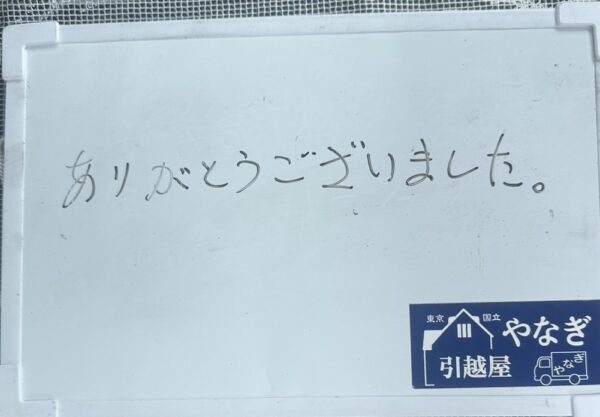 ありがとうございました。
東京 国立 やなぎ
引越屋 やなぎ